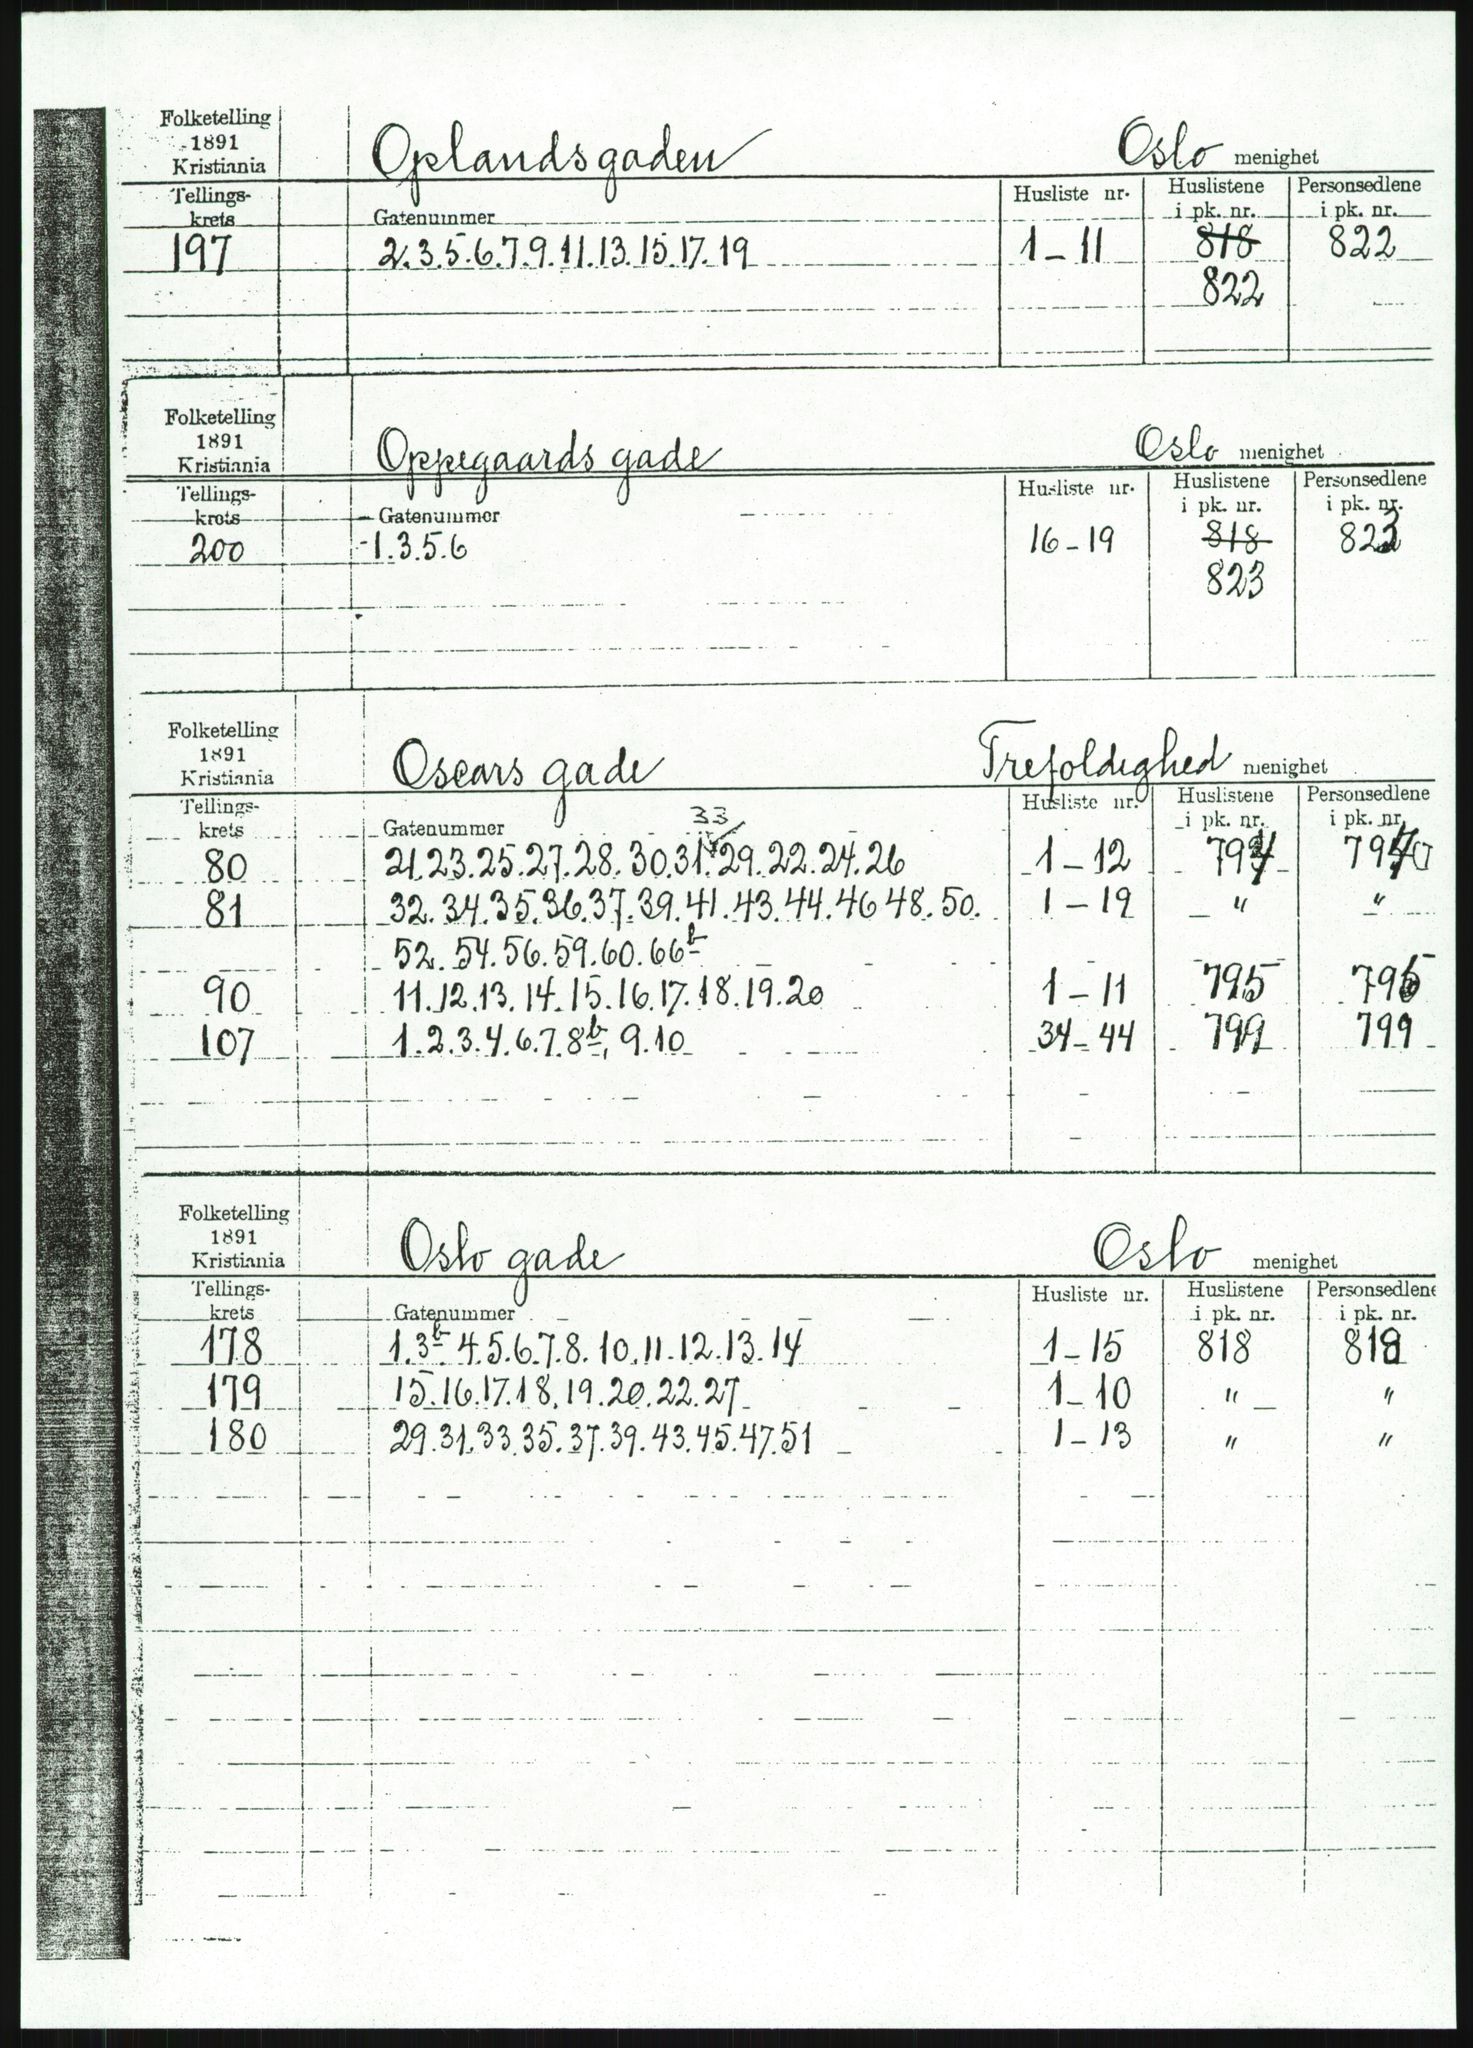 Folketelling
1891
Kristiania
Oplandsgaden Oslo menighet
Tellings-
krets Gatenummer Husliste nr. Huslistene i pk. nr. Personsedlene i pk. nr.
197 2.3.5.6.7.9.11.13.15.17.19 1-11 818 822
822
Folketelling
1891
Kristiania
Oppegaards gade Oslo menighet
Tellings-
krets Gatenummer Husliste nr. Huslistene i pk. nr. Personsedlene i pk. nr.
200 1.3.5.6 16-19 818 823
823
Folketelling
1891
Kristiania
Oscars gade Trefoldighed menighet
Tellings-
krets Gatenummer Husliste nr. Huslistene i pk. nr. Personsedlene i pk. nr.
33
80 21.23.25.27.28.30.31.29.22.24.26 1-12 794 794
81 32.34.35.36.37.39.41.43.44.46 48.50. 1-19 " "
52.54.56.59.60.66b
90 11.12.13.14.15.16.17.18.19.20 1-11 795 795
107 1.2.3.4.6.7.8b, 9.10 34-44 799 799
Folketelling
1891
Kristiania
Oslo gade Oslo menighet
Tellings-
krets Gatenummer Husliste nr. Huslistene i pk. nr. Personsedlene i pk. nr.
178 1.3b.4.5.6.7.8.10.11.12.13.14 1-15 818 818
179 15.16.17.18.19.20.22.27 1-10 " "
180 29.31.33.35.37.39.43.45.47.51 1-13 " "